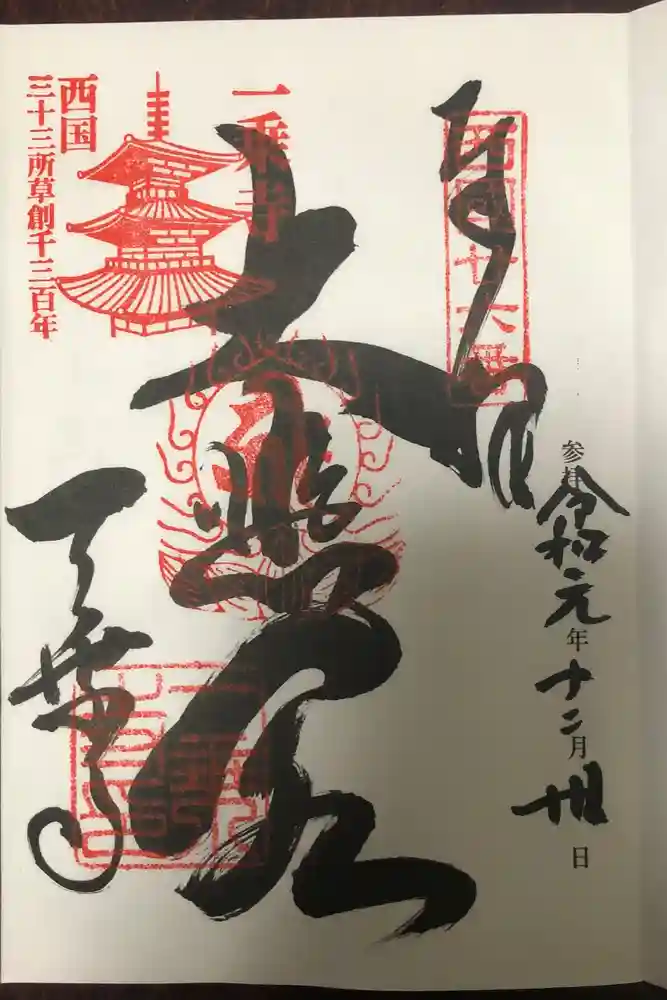 奉拝
西國廿六番
参拝 令和元年十二月
日
一乗寺
大悲閣
西国
三十三所草創千三百年
一乗寺